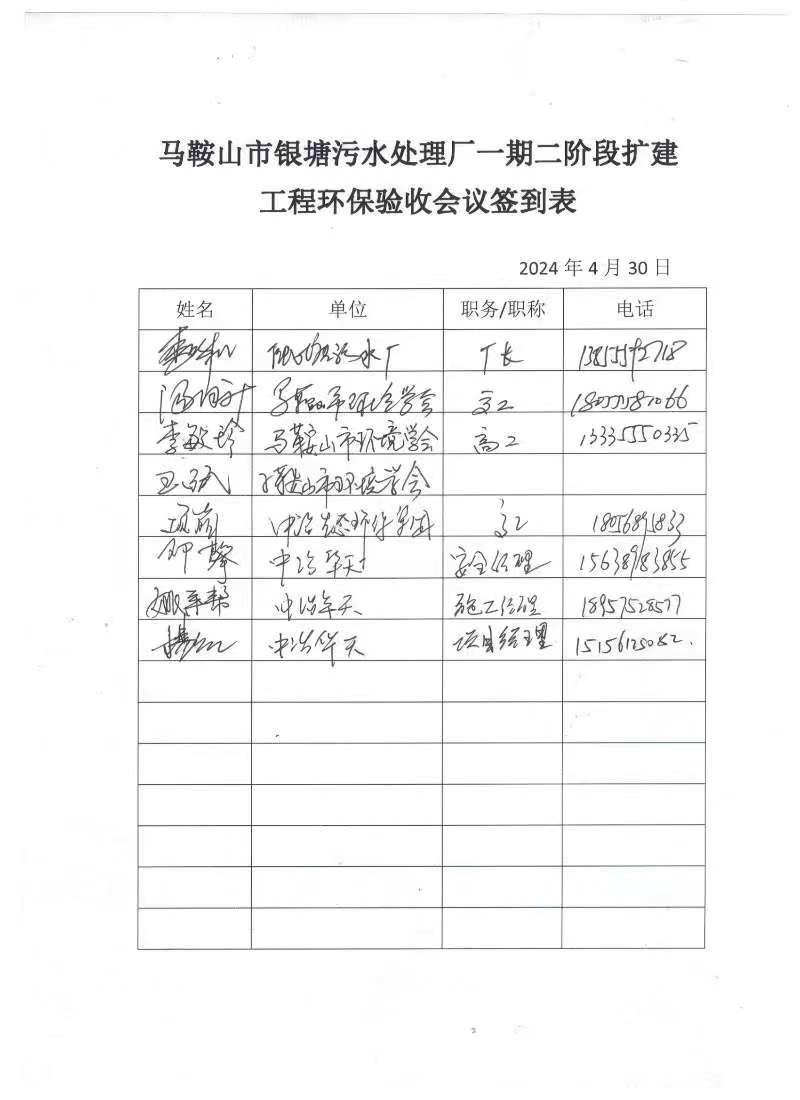 马鞍山市银塘污水处理厂一期二阶段扩建
工程环保验收会议签到表
2024 年 4 月 30 日
姓名 单位 职务/职称 电话
污水厂 厂长
马鞍山市环境学会 高工
李敏珍 马鞍山市环境学会 高工 13335550335
马鞍山市环境学会
中冶生态环保集团 高工 18056891833
中冶华天 安全经理 15638983855
中冶华天 施工经理 18957528577
中冶华天 项目经理 15156125082.